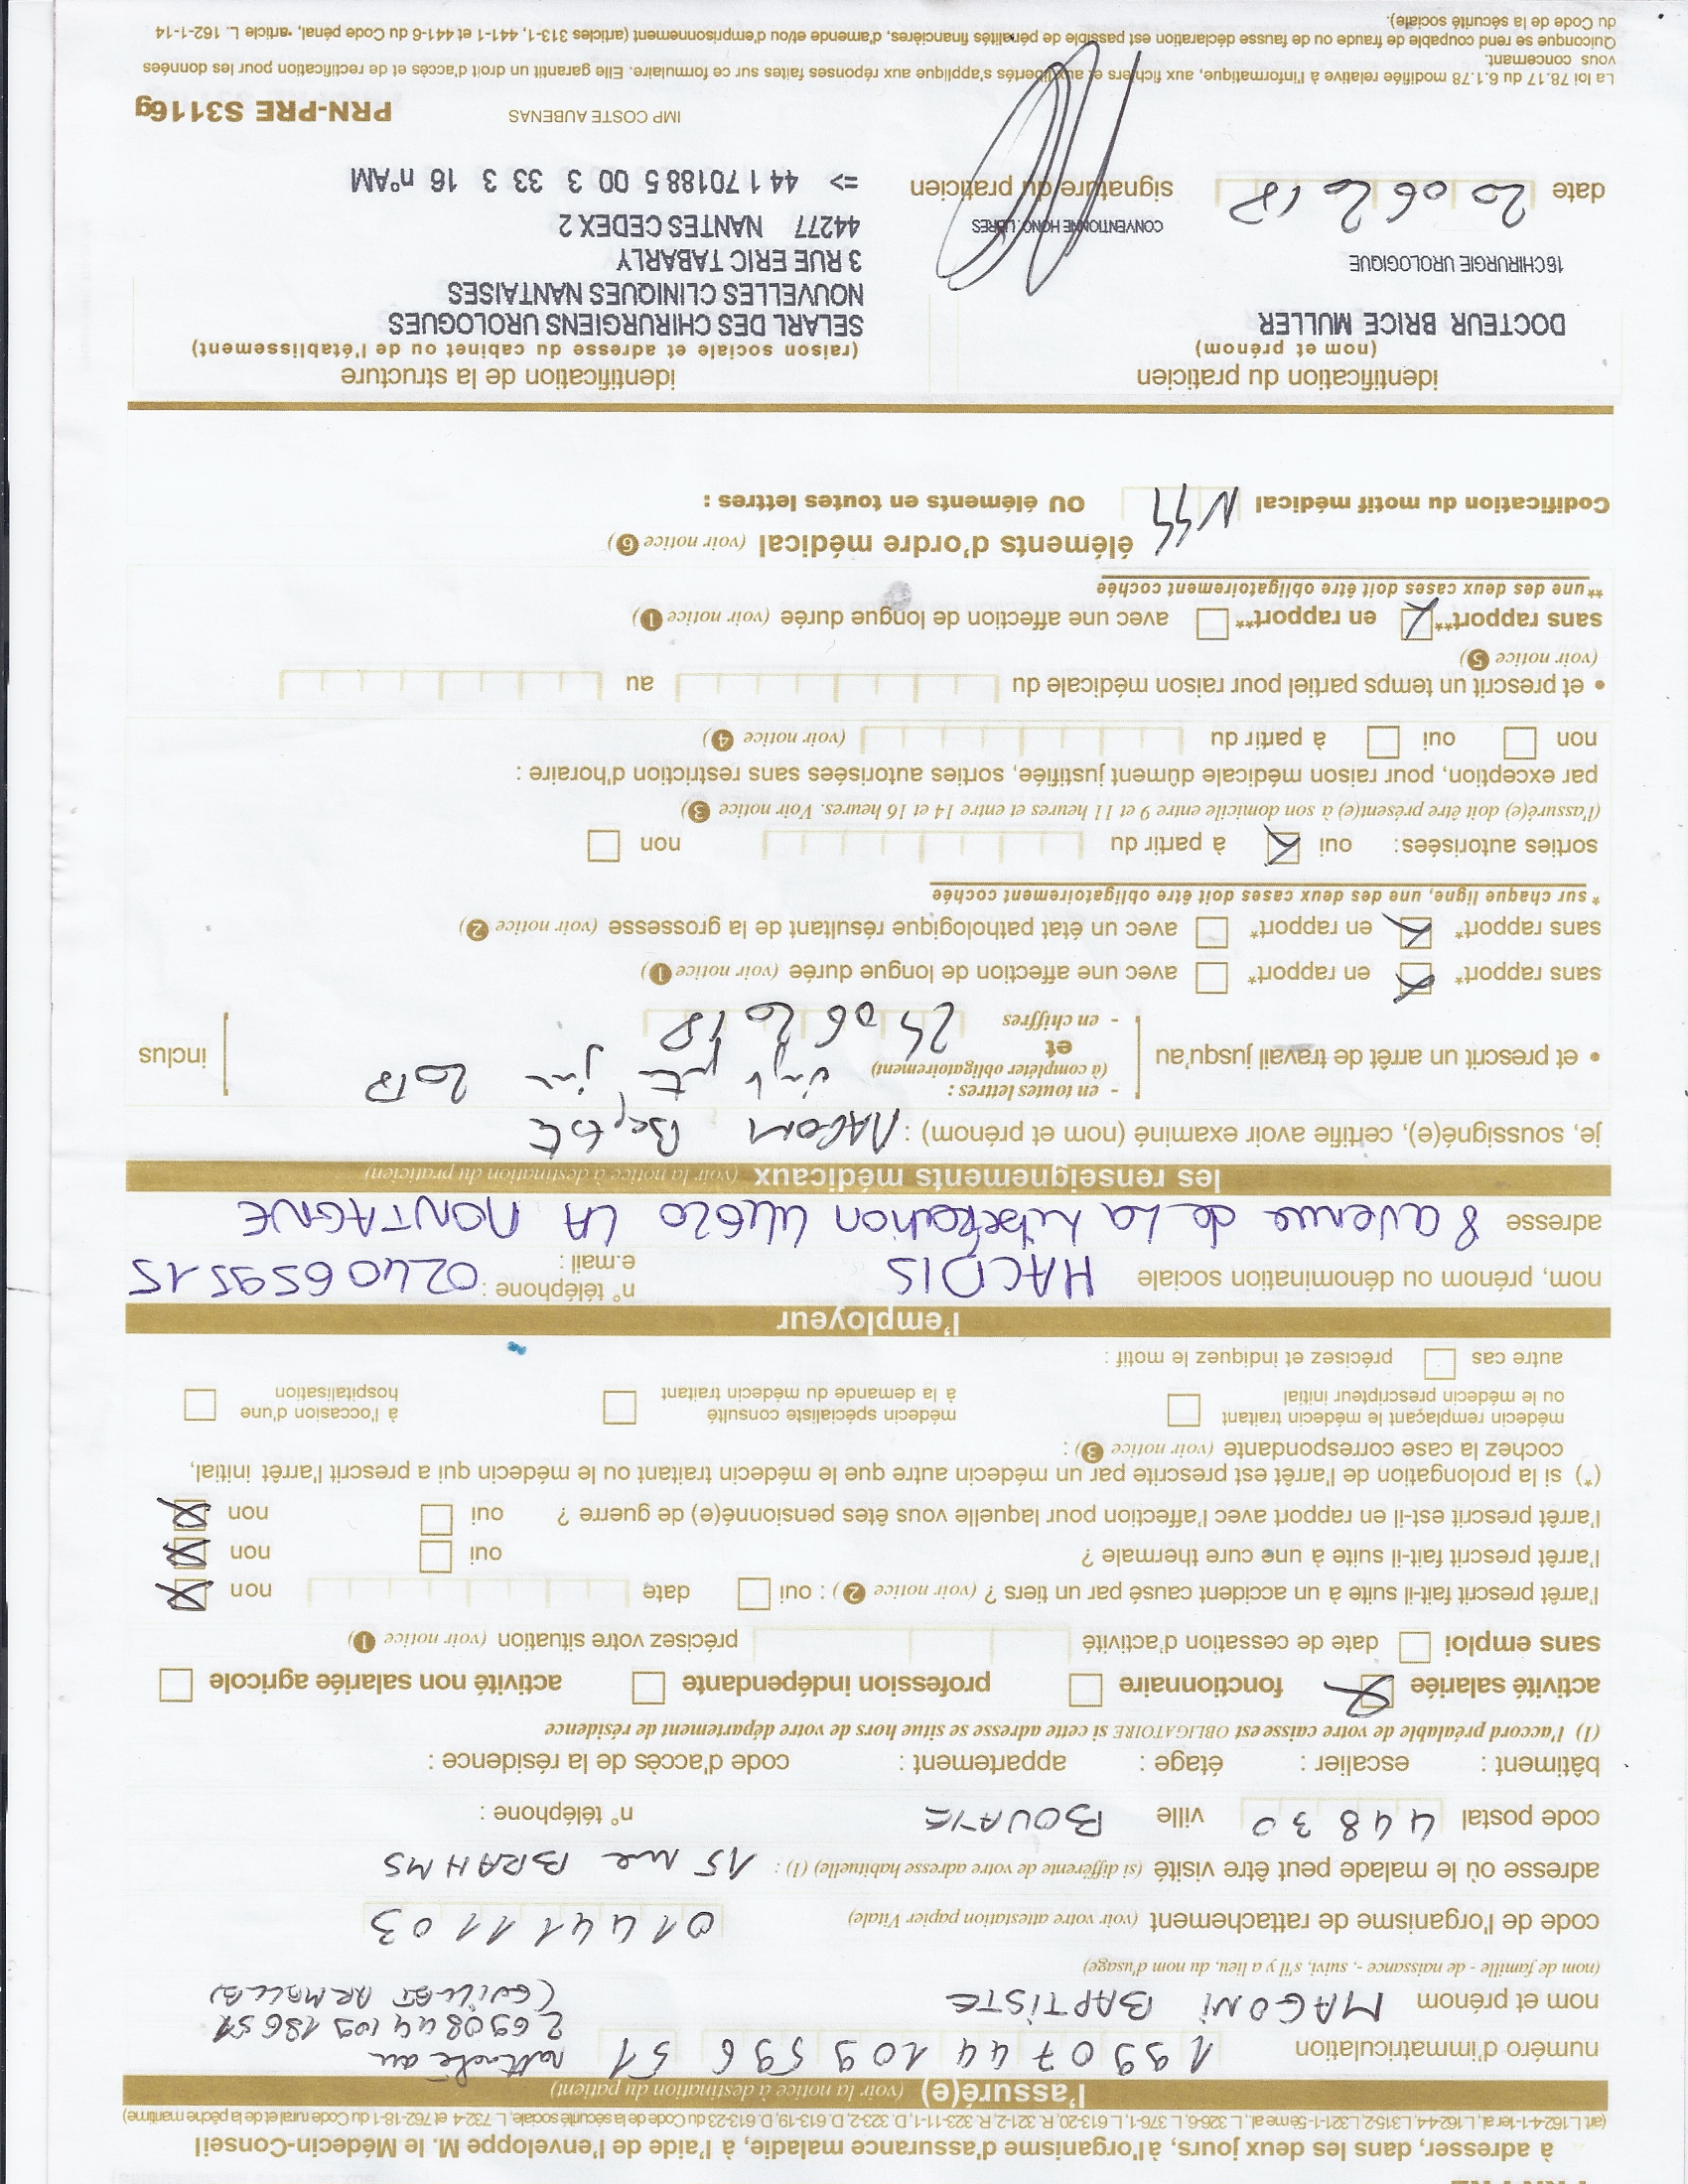 à adresser, dans les deux jours, à l'organisme d'assurance maladie, à l'aide de l'enveloppe M. le Médecin-Conseil
(art. L.162-4-1-1er al., L.162-4-4, L.315-2, L.321-1-5ème al., L. 326-6, L. 376-1, L. 613-20, R. 321-2, R. 323-11-1, D. 323-2, D. 613-19, D. 613-23 du Code de la sécurité sociale, L. 732-4 et 762-18-1 du Code rural et de la pêche maritime)
l'assuré(e) (voir la notice à destination du patient)
numéro d'immatriculation 1 99 07 44 109 596 51 rattaché au
2690844109 18651
nom et prénom MAGONI BAPTISTE (GUILLET ARMELLE)
(nom de famille - de naissance -, suivi, s'il y a lieu, du nom d'usage)
code de l'organisme de rattachement (voir votre attestation papier Vitale) 01 441 11 03
adresse où le malade peut être visité (si différente de votre adresse habituelle) (1) : 15 rue BRAHMS
code postal 44830 ville BOUAYE n° téléphone :
bâtiment : escalier : étage : appartement : code d'accès de la résidence :
(1) l'accord préalable de votre caisse est OBLIGATOIRE si cette adresse se situe hors de votre département de résidence
activité salariée fonctionnaire profession indépendante activité non salariée agricole
sans emploi date de cessation d'activité précisez votre situation (voir notice 1)
l'arrêt prescrit fait-il suite à un accident causé par un tiers ? (voir notice 2) : oui date non
l'arrêt prescrit fait-il suite à une cure thermale ? oui non
l'arrêt prescrit est-il en rapport avec l'affection pour laquelle vous êtes pensionné(e) de guerre ? oui non
(*) si la prolongation de l'arrêt est prescrite par un médecin autre que le médecin traitant ou le médecin qui a prescrit l'arrêt initial,
cochez la case correspondante (voir notice 3) :
médecin remplaçant le médecin traitant médecin spécialiste consulté à l'occasion d'une
ou le médecin prescripteur initial à la demande du médecin traitant hospitalisation
autre cas précisez et indiquez le motif :
l'employeur
nom, prénom ou dénomination sociale MACDIS n° téléphone : 0240659515
e.mail :
adresse 8 avenue de La Libération 44620 LA MONTAGNE
les renseignements médicaux (voir la notice à destination du praticien)
je, soussigné(e), certifie avoir examiné (nom et prénom) : MAGONI Baptiste
- en toutes lettres : vingt juin 2018
(à compléter obligatoirement)
• et prescrit un arrêt de travail jusqu'au et inclus
- en chiffres 06 2018
sans rapport* en rapport* avec une affection de longue durée (voir notice 1)
sans rapport* en rapport* avec un état pathologique résultant de la grossesse (voir notice 2)
* sur chaque ligne, une des deux cases doit être obligatoirement cochée
sorties autorisées: oui à partir du non
(l'assuré(e) doit être présent(e) à son domicile entre 9 et 11 heures et entre 14 et 16 heures. Voir notice 3)
par exception, pour raison médicale dûment justifiée, sorties autorisées sans restriction d'horaire :
non oui à partir du (voir notice 4)
• et prescrit un temps partiel pour raison médicale du au
(voir notice 5)
sans rapport** en rapport** avec une affection de longue durée (voir notice 1)
**une des deux cases doit être obligatoirement cochée
éléments d'ordre médical (voir notice 6)
Codification du motif médical OU éléments en toutes lettres :
identification du praticien identification de la structure
(nom et prénom) (raison sociale et adresse du cabinet ou de l'établissement)
DOCTEUR BRICE MULLER SELARL DES CHIRURGIENS UROLOGUES
NOUVELLES CLINIQUES NANTAISES
16 CHIRURGIE UROLOGIQUE 3 RUE ERIC TABARLY
CONVENTIONNE HONO. LIBRES 44277 NANTES CEDEX 2
date 20 06 2018 signature du praticien => 44 1 70188 5 00 3 33 3 16 n°AM
IMP COSTE AUBENAS PRN-PRE S3116g
La loi 78.17 du 6.1.78 modifiée relative à l'informatique, aux fichiers et aux libertés s'applique aux réponses faites sur ce formulaire. Elle garantit un droit d'accès et de rectification pour les données
vous concernant.
Quiconque se rend coupable de fraude ou de fausse déclaration est passible de pénalités financières, d'amende et/ou d'emprisonnement (articles 313-1, 441-1 et 441-6 du Code pénal, article L. 162-1-14
du Code de la sécurité sociale).